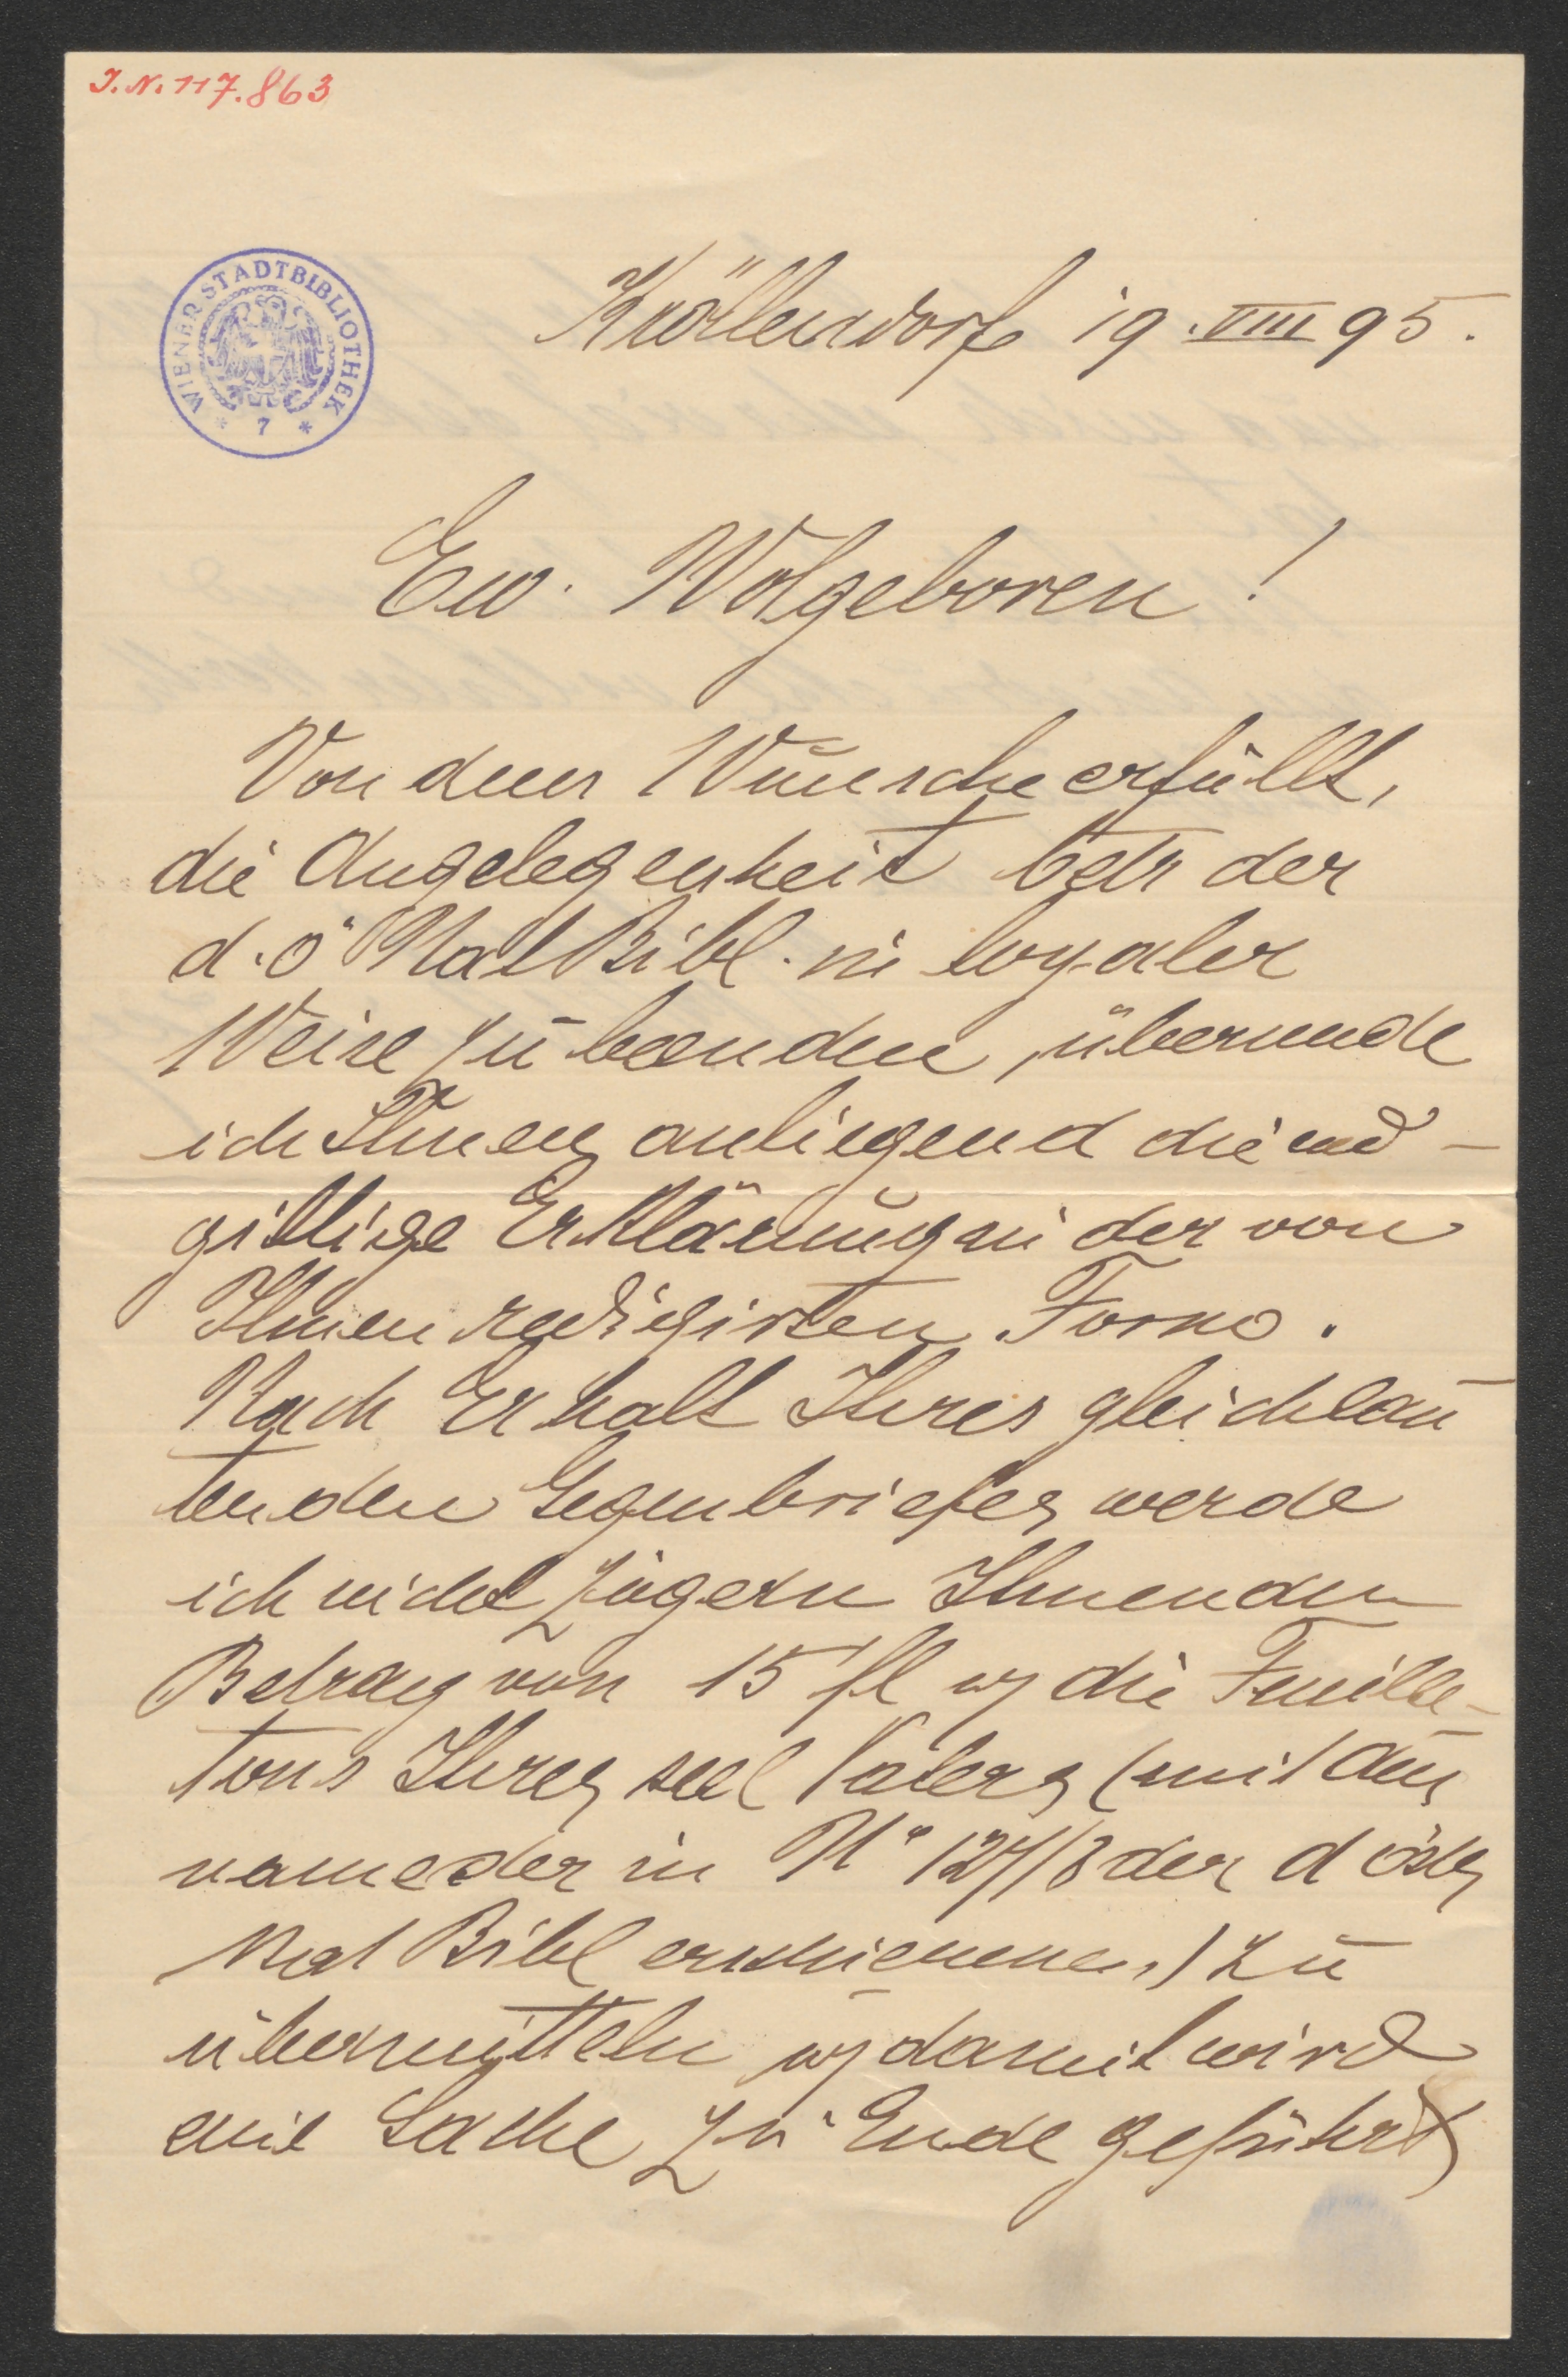 J. N. 117.863
WIENER STADTBIBLIOTHEK
* 7 *
Kröllendorf 19. VIII 95.
Ew. Wolgeboren!
Von dem Wunsche erfüllt,
die Angelegenheit betr der
d. ö Nat Bibl. in loyaler
Weise zu beenden, übersende
ich Ihnen anliegend die end-
giltige Erklärung in der von
Ihnen redigirten Form.
Nach Erhalt Ihres gleichlau
tenden Gegenbriefes werde
ich nicht zögern Ihnen den
Betrag von 15 fl die Feuille-
tons Ihres seel Vaters (mit Aus
name der in No 127/8 der d öster
Nat Bibl erschienenen) zu
übermitteln damit wird
eine Sache zu Ende geführt